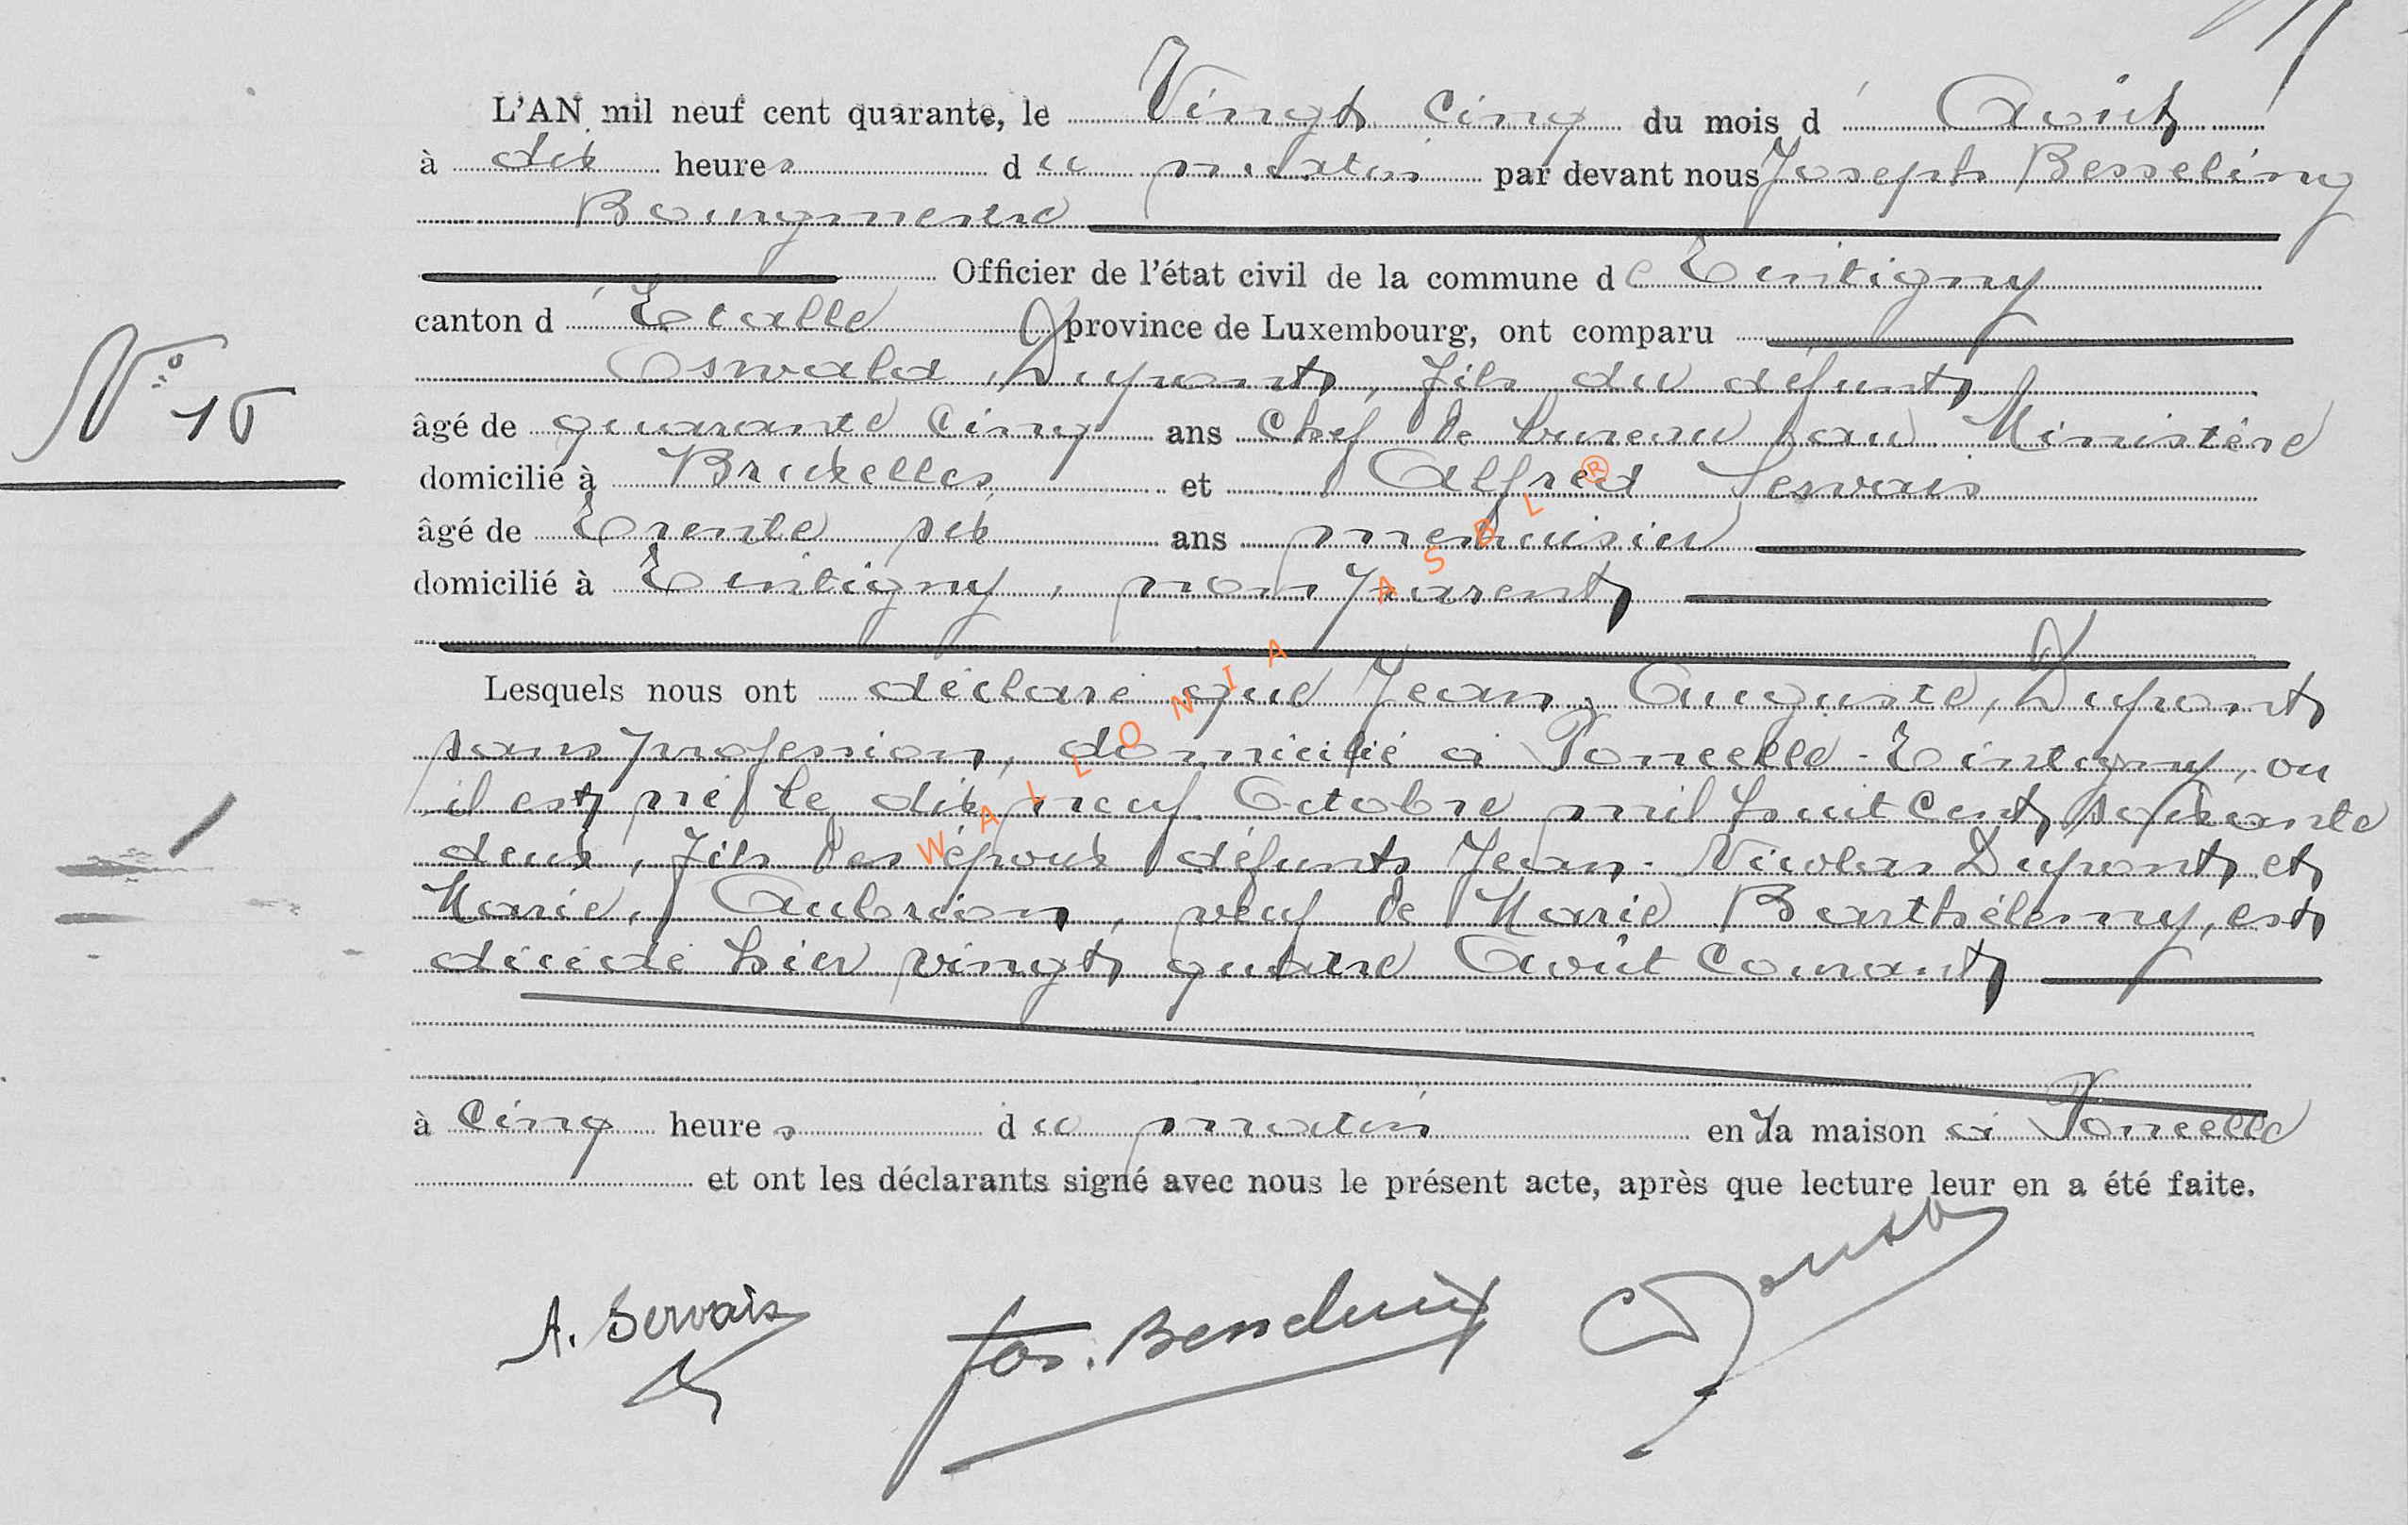 L'AN mil neuf cent quarante, le Vingt Cinq du mois d' Août
à dix heures du matin par devant nous Joseph Besseling
Bourgmestre
Officier de l'état civil de la commune de Tintigny
canton d' Etalle province de Luxembourg, ont comparu
Oswald, Dupont, fils du défunt
N° 15
âgé de quarante cinq ans Chef de bureau au Ministère
domicilié à Bruxelles et Alfred Servais
âgé de Trente six ans menuisier
domicilié à Tintigny, non parent
Lesquels nous ont déclaré que Jean, Auguste, Dupont
sans profession, domicilié à Poncelle-Tintigny, ou
il est né le dix neuf Octobre mil huit Cent soixante
deux, fils des époux défunts Jean-Nicolas Dupont et
Marie, Aubrion, veuf de Marie Barthélemy, est
décédé hier vingt quatre Août Courant
à Cinq heures du matin en la maison à Poncelle
et ont les déclarants signé avec nous le présent acte, après que lecture leur en a été faite.
A. Servais Jos.
WALLONIA ASBL ®